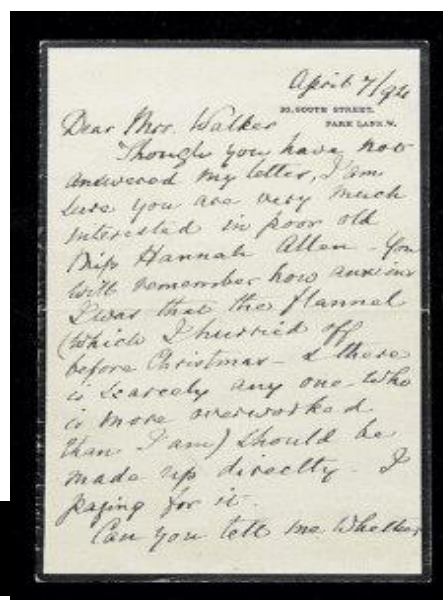 April 7/94
30, SOUTH STREET,
PARK LANE. W.
Dear Mrs. Walker
Though you have not
answered my letter, I am
sure you are very much
interested in poor old
Miss Hannah Allen - You
will remember how anxious
I was that the flannel
(which I hurried off
before Christmas - & there
is scarcely any one who
is more overworked
than I am) should be
made up directly - I
paying for it.
Can you tell me whether